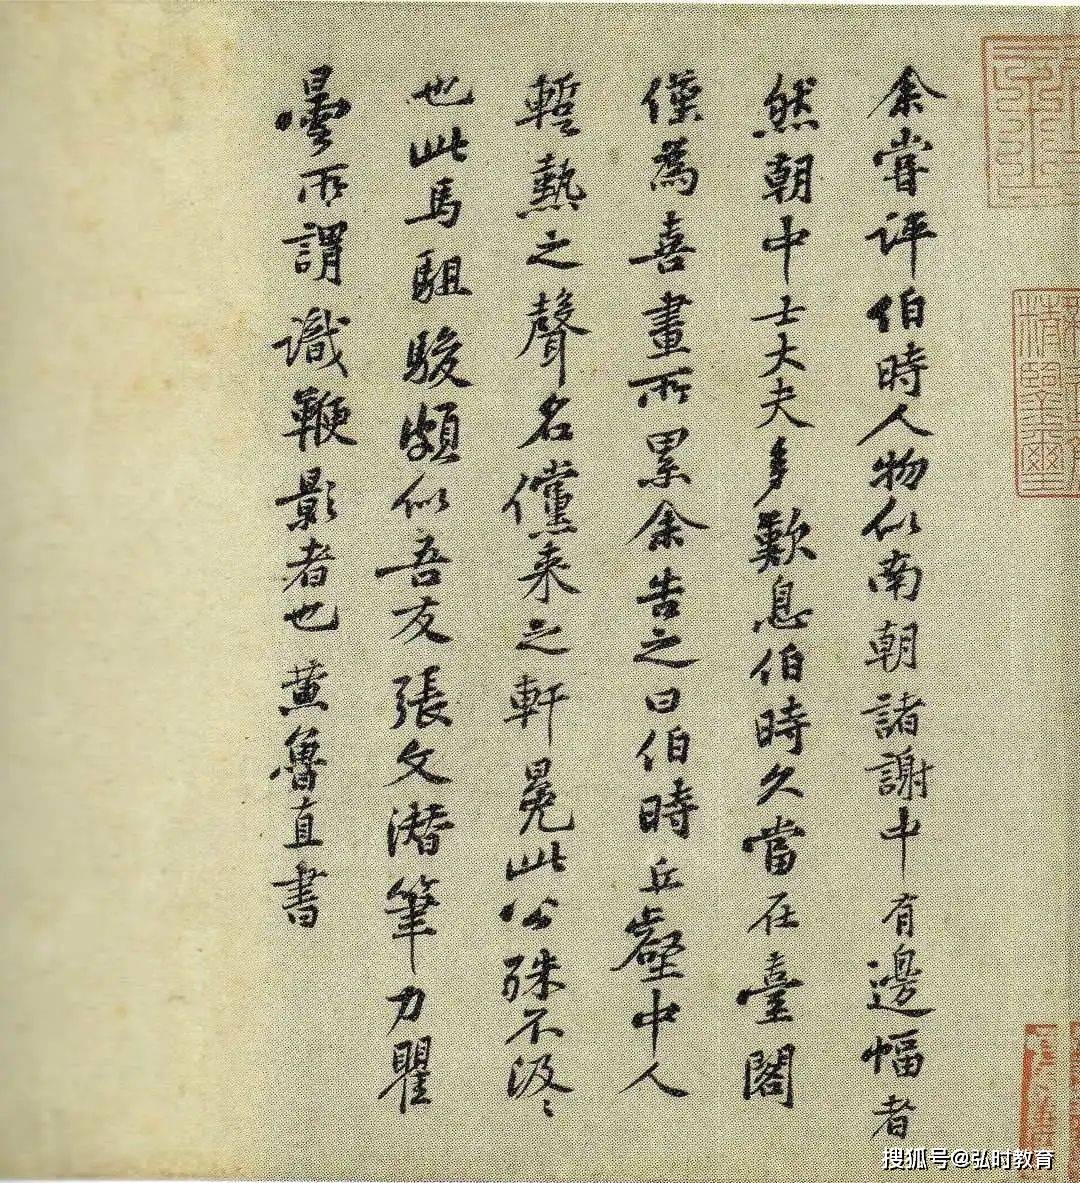 余嘗評伯時人物似南朝諸謝中有邊幅者
然朝中士大夫多歎息伯時久當在臺閣
僅為喜畫所累余告之曰伯時丘壑中人
暫熱之聲名儻来之軒冕此公殊不汲〻
也此馬駔駿頗似吾友張文潜筆力瞿
曇所謂識鞭影者也黄魯直書
搜狐号@弘时教育